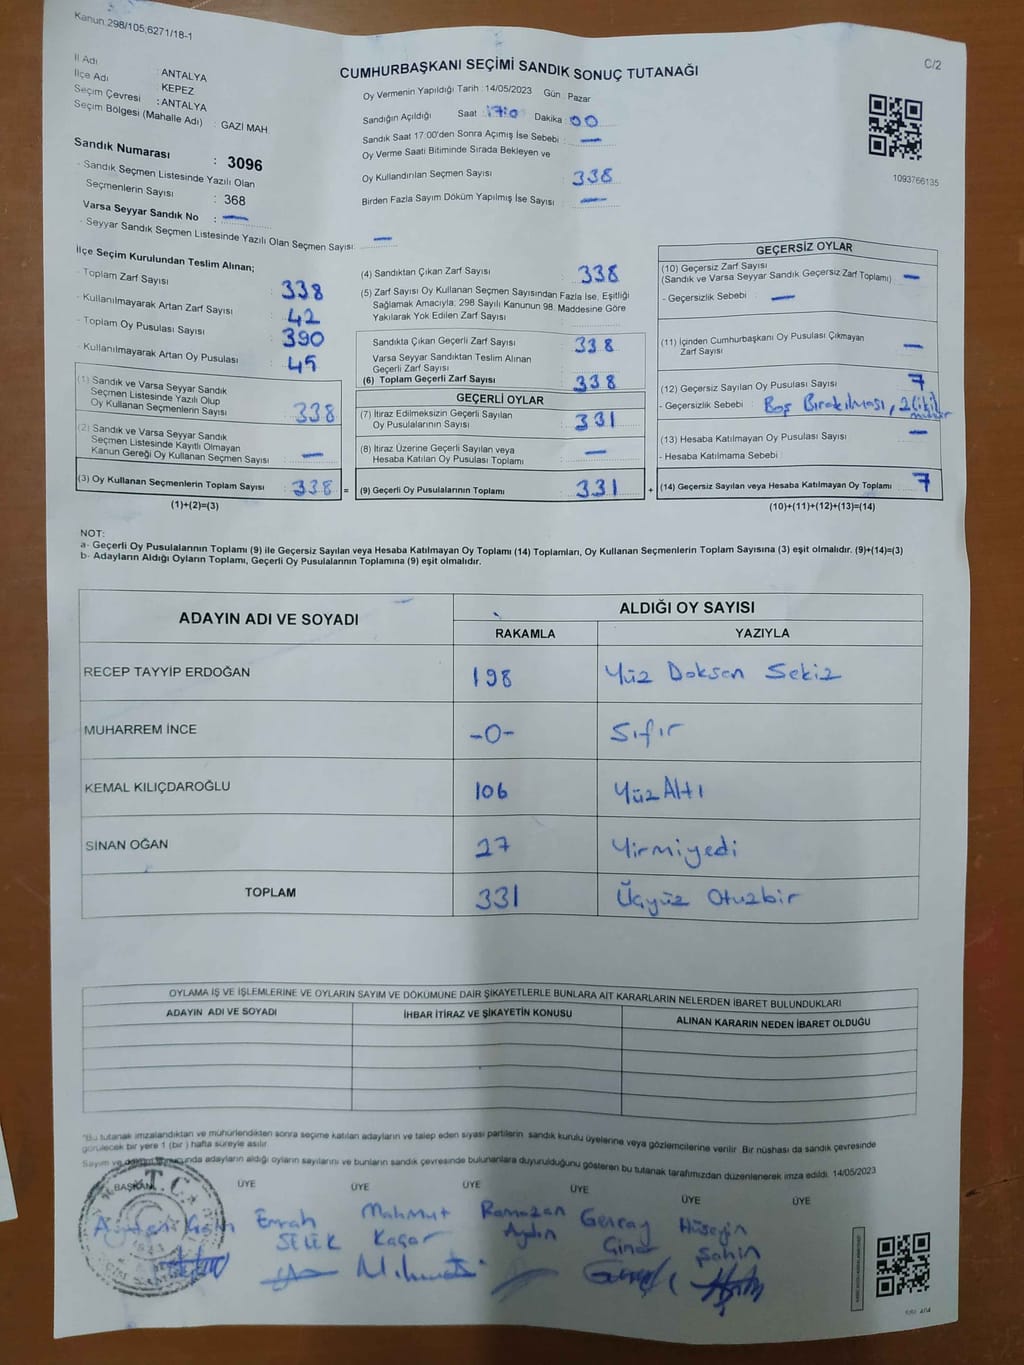 Kanun:298/105,6271/18-1
C/2
CUMHURBAŞKANI SEÇİMİ SANDIK SONUÇ TUTANAĞI
İl Adı : ANTALYA
İlçe Adı : KEPEZ
Seçim Çevresi : ANTALYA
Seçim Bölgesi (Mahalle Adı) : GAZİ MAH.
Sandık Numarası : 3096
- Sandık Seçmen Listesinde Yazılı Olan
Seçmenlerin Sayısı : 368
Varsa Seyyar Sandık No : —
- Seyyar Sandık Seçmen Listesinde Yazılı Olan Seçmen Sayısı: —
Oy Vermenin Yapıldığı Tarih : 14/05/2023 Gün : Pazar
Sandığın Açıldığı Saat 17:0 Dakika 00
Sandık Saat 17:00'den Sonra Açımış İse Sebebi : —
Oy Verme Saati Bitiminde Sırada Bekleyen ve
Oy Kullandırılan Seçmen Sayısı 338
Birden Fazla Sayım Döküm Yapılmış İse Sayısı : —
1093766135
İlçe Seçim Kurulundan Teslim Alınan;
- Toplam Zarf Sayısı : 338
- Kullanılmayarak Artan Zarf Sayısı : 42
- Toplam Oy Pusulası Sayısı : 390
- Kullanılmayarak Artan Oy Pusulası : 45
(1) Sandık ve Varsa Seyyar Sandık
Seçmen Listesinde Yazılı Olup
Oy Kullanan Seçmenlerin Sayısı : 338
(2) Sandık ve Varsa Seyyar Sandık
Seçmen Listesinde Kayıtlı Olmayan
Kanun Gereği Oy Kullanan Seçmen Sayısı : —
(3) Oy Kullanan Seçmenlerin Toplam Sayısı : 338 =
(1)+(2)=(3)
(4) Sandıktan Çıkan Zarf Sayısı : 338
(5) Zarf Sayısı Oy Kullanan Seçmen Sayısından Fazla İse, Eşitliği
Sağlamak Amacıyla; 298 Sayılı Kanunun 98. Maddesine Göre
Yakılarak Yok Edilen Zarf Sayısı :
Sandıkta Çıkan Geçerli Zarf Sayısı : 338
Varsa Seyyar Sandıktan Teslim Alınan
Geçerli Zarf Sayısı :
(6) Toplam Geçerli Zarf Sayısı : 338
GEÇERLİ OYLAR
(7) İtiraz Edilmeksizin Geçerli Sayılan
Oy Pusulalarının Sayısı : 331
(8) İtiraz Üzerine Geçerli Sayılan veya
Hesaba Katılan Oy Pusulası Toplamı : —
(9) Geçerli Oy Pusulalarının Toplamı : 331 +
GEÇERSİZ OYLAR
(10) Geçersiz Zarf Sayısı
(Sandık ve Varsa Seyyar Sandık Geçersiz Zarf Toplamı) : —
- Geçersizlik Sebebi : —
(11) İçinden Cumhurbaşkanı Oy Pusulası Çıkmayan
Zarf Sayısı : —
(12) Geçersiz Sayılan Oy Pusulası Sayısı : 7
- Geçersizlik Sebebi : Boş Bırakılması, 2
(13) Hesaba Katılmayan Oy Pusulası Sayısı : —
- Hesaba Katılmama Sebebi :
(14) Geçersiz Sayılan veya Hesaba Katılmayan Oy Toplamı : 7
(10)+(11)+(12)+(13)=(14)
NOT:
a- Geçerli Oy Pusulalarının Toplamı (9) ile Geçersiz Sayılan veya Hesaba Katılmayan Oy Toplamı (14) Toplamları, Oy Kullanan Seçmenlerin Toplam Sayısına (3) eşit olmalıdır. (9)+(14)=(3)
b- Adayların Aldığı Oyların Toplamı, Geçerli Oy Pusulalarının Toplamına (9) eşit olmalıdır.
ADAYIN ADI VE SOYADI
ALDIĞI OY SAYISI
RAKAMLA YAZIYLA
RECEP TAYYİP ERDOĞAN 198 Yüz Doksan Sekiz
MUHARREM İNCE -0- Sıfır
KEMAL KILIÇDAROĞLU 106 Yüz Altı
SİNAN OĞAN 27 Yirmiyedi
TOPLAM 331 Üçyüz Otuzbir
OYLAMA İŞ VE İŞLEMLERİNE VE OYLARIN SAYIM VE DÖKÜMÜNE DAİR ŞİKAYETLERLE BUNLARA AİT KARARLARIN NELERDEN İBARET BULUNDUKLARI
ADAYIN ADI VE SOYADI İHBAR İTİRAZ VE ŞİKAYETİN KONUSU ALINAN KARARIN NEDEN İBARET OLDUĞU
*Bu tutanak imzalandıktan ve mühürlendikten sonra seçime katılan adayların ve talep eden siyasi partilerin sandık kurulu üyelerine veya gözlemcilerine verilir. Bir nüshası da sandık çevresinde
görülecek bir yere 1 (bir) hafta süreyle asılır.
Sayım ve döküm sonucunda adayların aldığı oyların sayılarını ve bunların sandık çevresinde bulunanlara duyurulduğunu gösteren bu tutanak tarafımızdan düzenlenerek imza edildi. 14/05/2023
BAŞKAN ÜYE ÜYE ÜYE ÜYE ÜYE ÜYE
T.C.
Emrah Mahmut Ramazan Gencay Hüseyin
SELEK Kaçar Aydın Giner Şahin